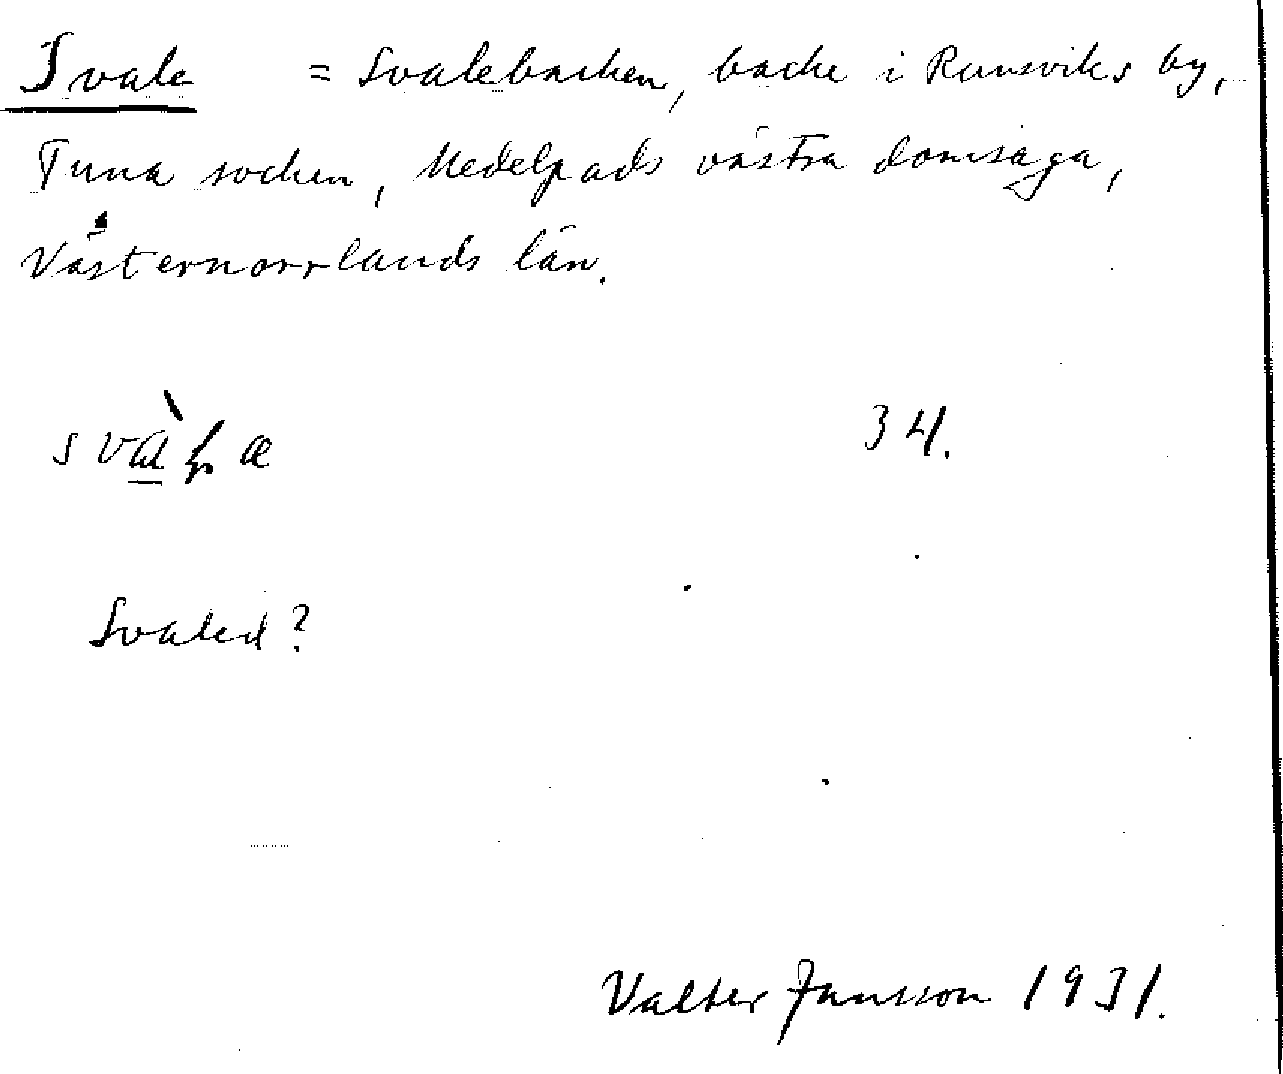 Svale = Svalebacken, backe i Runsviks by,
Tuna socken, Medelpads västra domsaga,
Västernorrlands län.
34.
Svaled?
Valter Jansson 1931.